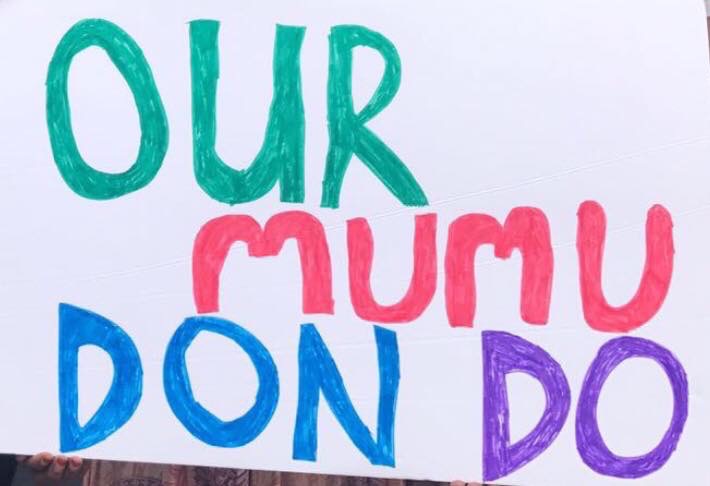 OUR
MUMU
DON DO